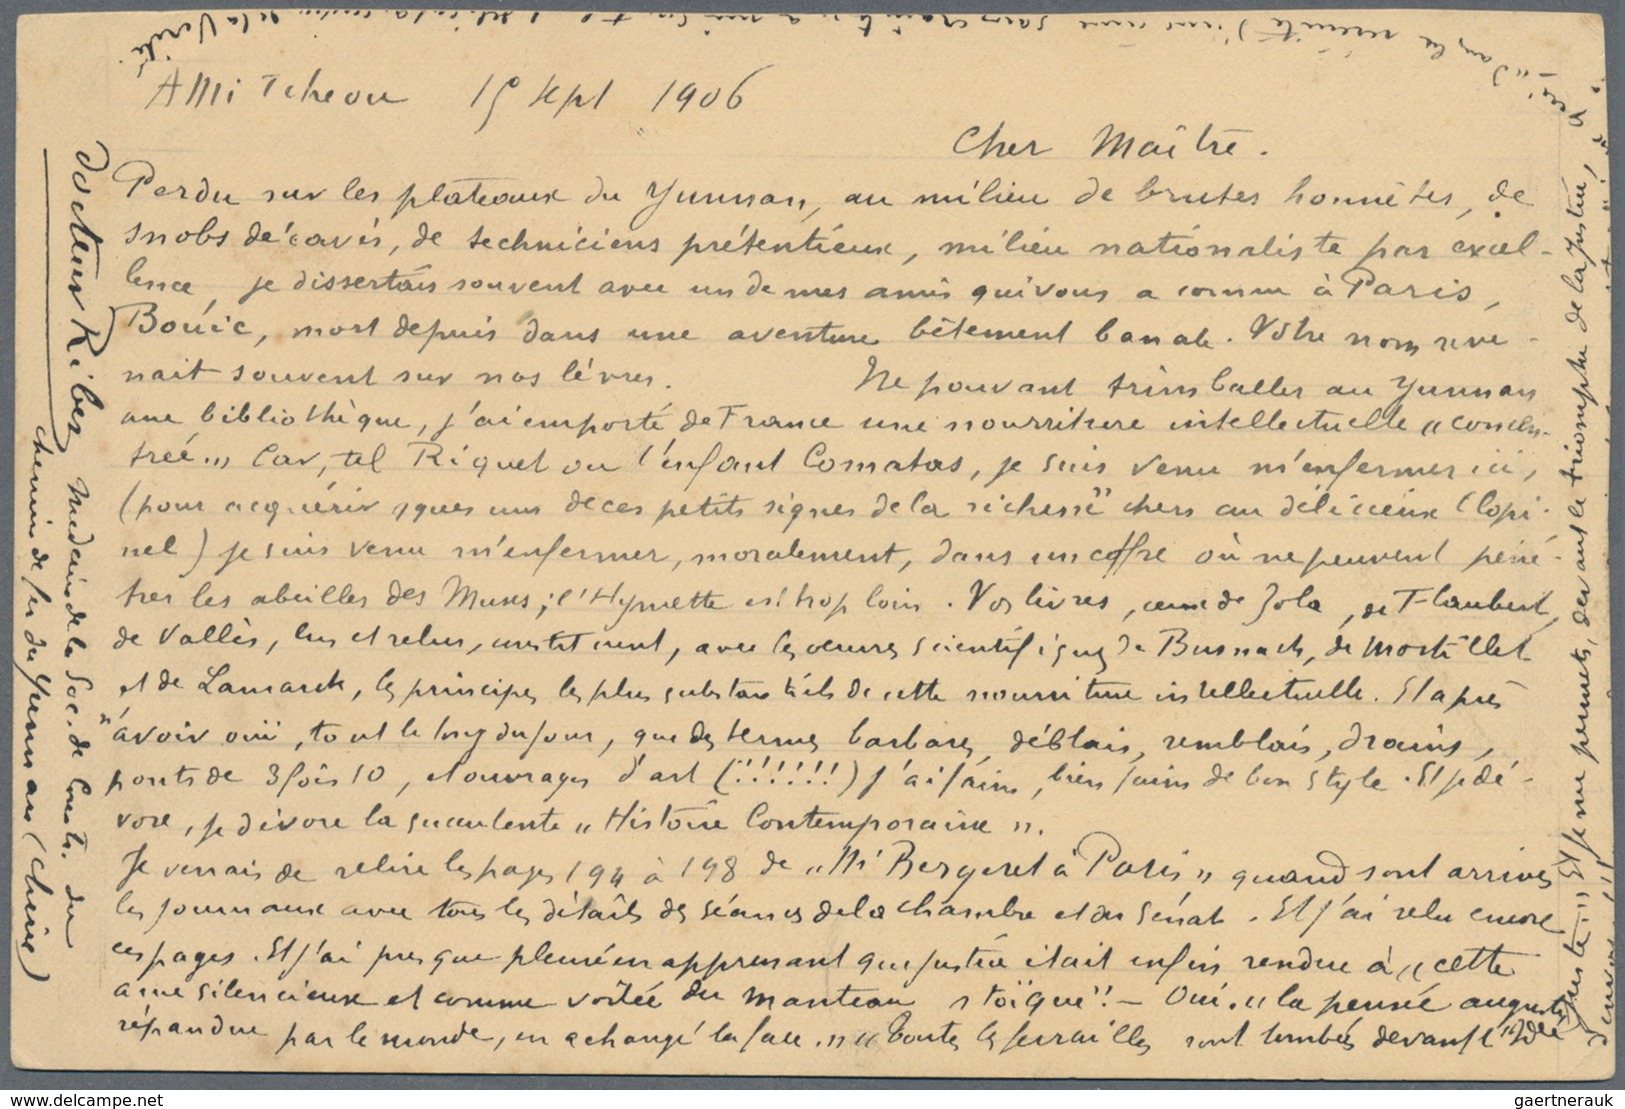 AMi Tcheou 15 sept 1906
Cher Maître.
Perdu sur les plateaux du Yunnan, au milieu de brutes honnêtes, de
snobs décavés, de techniciens prétentieux, milieu nationaliste par excel-
lence, je dissertais souvent avec un de mes amis qui vous a connu à Paris,
Bouic, mort depuis dans une aventure bêtement banale. Votre nom reve-
nait souvent sur nos lèvres. Ne pouvant trimballer au Yunnan
une bibliothèque, j'ai emporté de France une nourriture intellectuelle "concen-
trée." Car, tel Riquet ou l'enfant Comatas, je suis venu m'enfermer ici,
(pour acquérir qques uns de ces petits signes de la richesse" chers au délicieux Clopi-
nel) je suis venu m'enfermer, moralement, dans un coffre où ne peuvent péné-
trer les abeilles des Muses; l'Hymette est trop loin. Vos livres, ceux de Zola, de Flaubert,
de Vallès, lus et relus, constituent, avec les oeuvres scientifiques de de Mortillet
et de Lamarck, les principes les plus substantiels de cette nourriture intellectuelle. Et après
"avoir ouï, tout le long du jour, que des termes barbares, déblais, remblais, drains,
ponts de 3 fois 10, et ouvrages d'art (!!!!!!!) j'ai faim, bien faim de bon style. Et je dé-
vore, je dévore la succulente "Histoire Contemporaine".
Je venais de relire les pages 194 à 198 de "Mr Bergeret à Paris" quand sont arrivés
les journaux avec tous les détails des séances de la chambre et du Sénat. Et j'ai relu encore
ces pages. Et j'ai presque pleuré en apprenant que justice était enfin rendue à "cette
ame silencieuse et comme voilée du manteau stoïque"! - Oui. "la pensée auguste
répandue par le monde, en a changé la face." "Toutes les ferrailles sont tombées devant l'Idée
juste." Et je me permets, devant le triomphe de la Justice,
"dans la sérénité d'une âme sans crainte
de la Vérité
Docteur Ribes
Médecin de la Soc. de Constr. du
chemin de fer du Yunnan (Chine)
www.delcampe.net
gaertnerauk